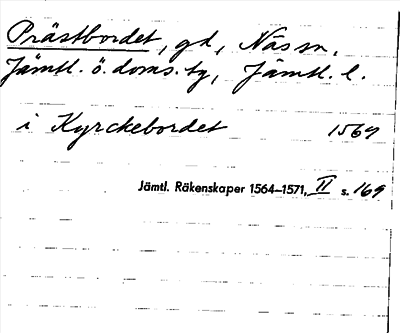 Prästbordet, gd, Näs sn,
Jämtl. ö. doms. tg, Jämtl. l.
i Kyrckebordet 1569
Jämtl. Räkenskaper 1564–1571, II s. 169